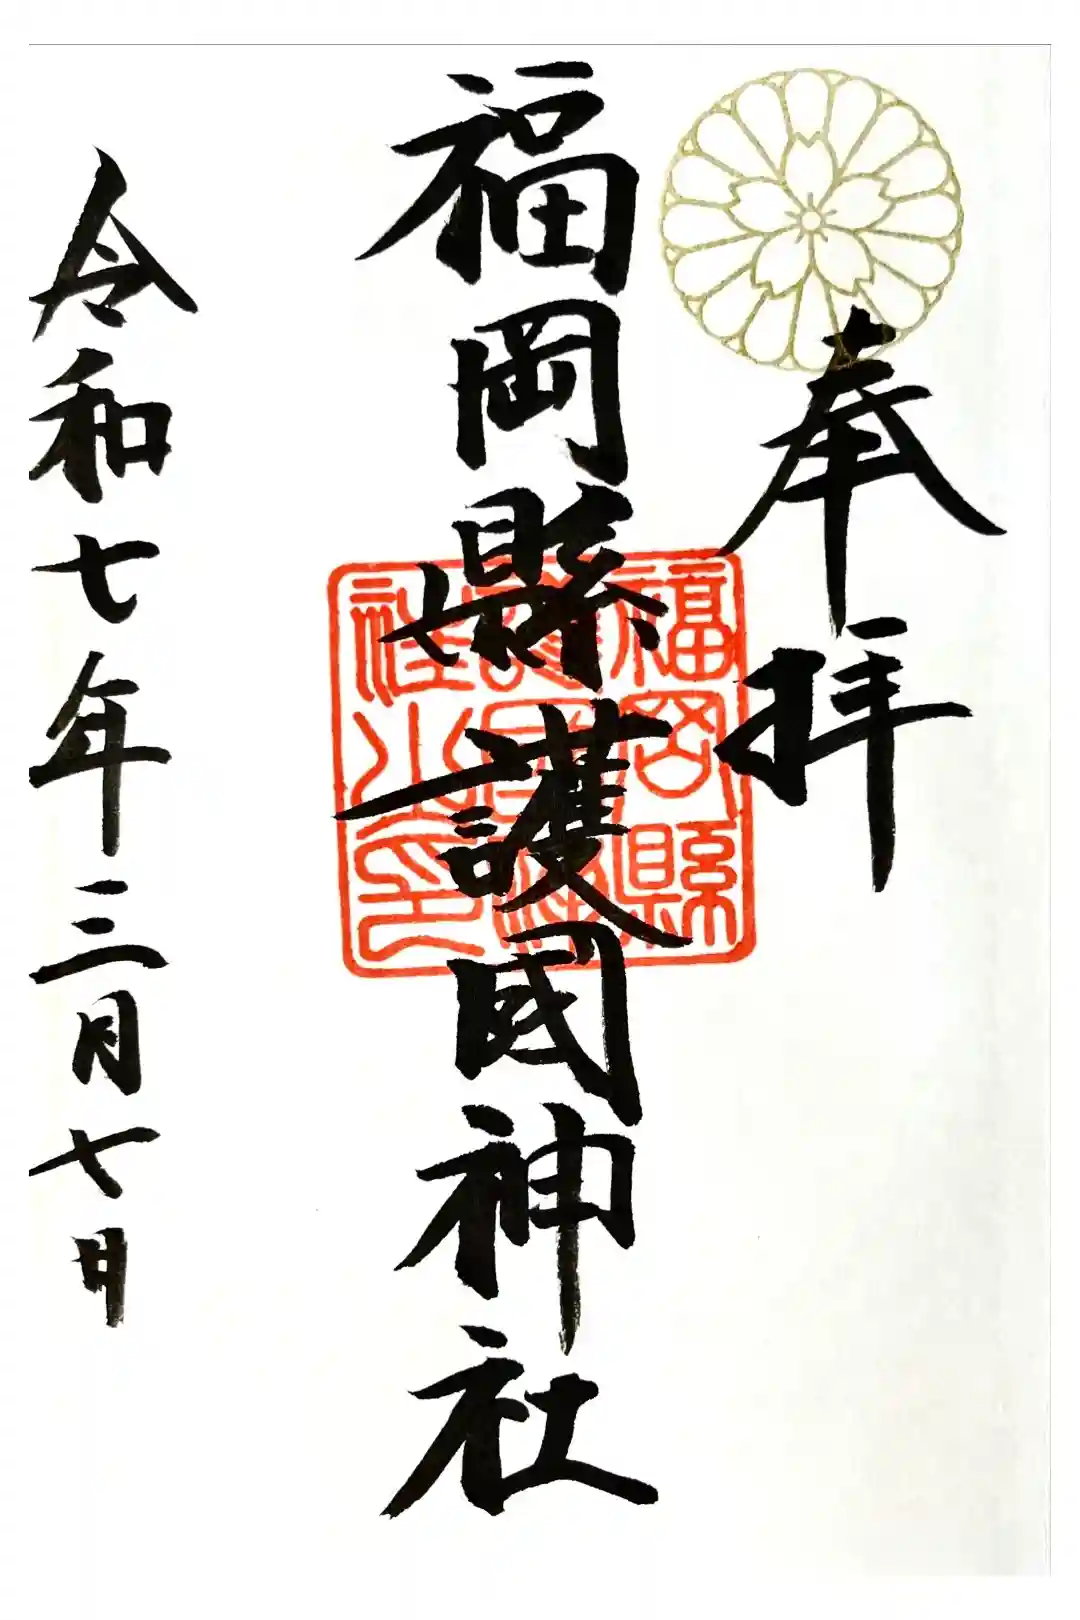 奉拝
福岡縣護國神社
福岡縣護国神社之印
令和七年三月七日